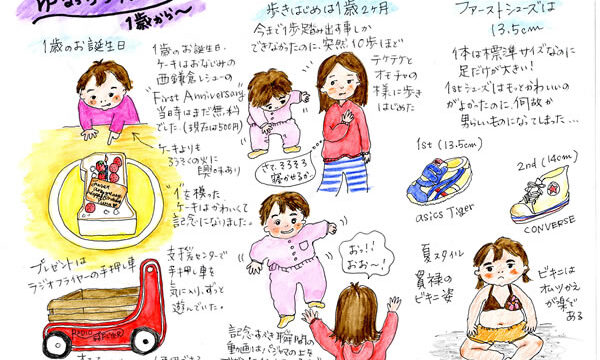 1歳から〜
1歳のお誕生日
1歳のお誕生日.
ケーキはおなじみの
西鎌倉レシューの
"First Anniversary"
当時はまだ無料
でした.(現在は500円)
ケーキよりも
ろうそくの火に
興味あり
"1"を模った
ケーキはかわいくて
記念になりました。
プレゼントは
ラジオフライヤーの手押し車
支援センターで
手押し車を
気に入り、ずっと
遊んでいた。
歩きはじめは1歳2ヶ月
今まで1歩踏み出す事しか
できなかったのに、突然10歩ほど
テケテケと
オモチャの
様に歩き
はじめた
さて、そろそろ
寝かせるか…
おっ!!
おお〜!
記念すべき瞬間の
動画はパジャマの上を
ファーストシューズは
13.5cm
体は標準サイズなのに
足だけが大きい!
1stシューズはもっとかわいいの
がよかったのに、何故か
男らしいものになってしまった…
1st (13.5cm)
asics Tiger
2nd (14cm)
CONVERSE
夏スタイル
貫禄の
ビキニ姿
ビキニは
オムツかえ
が楽で
ある